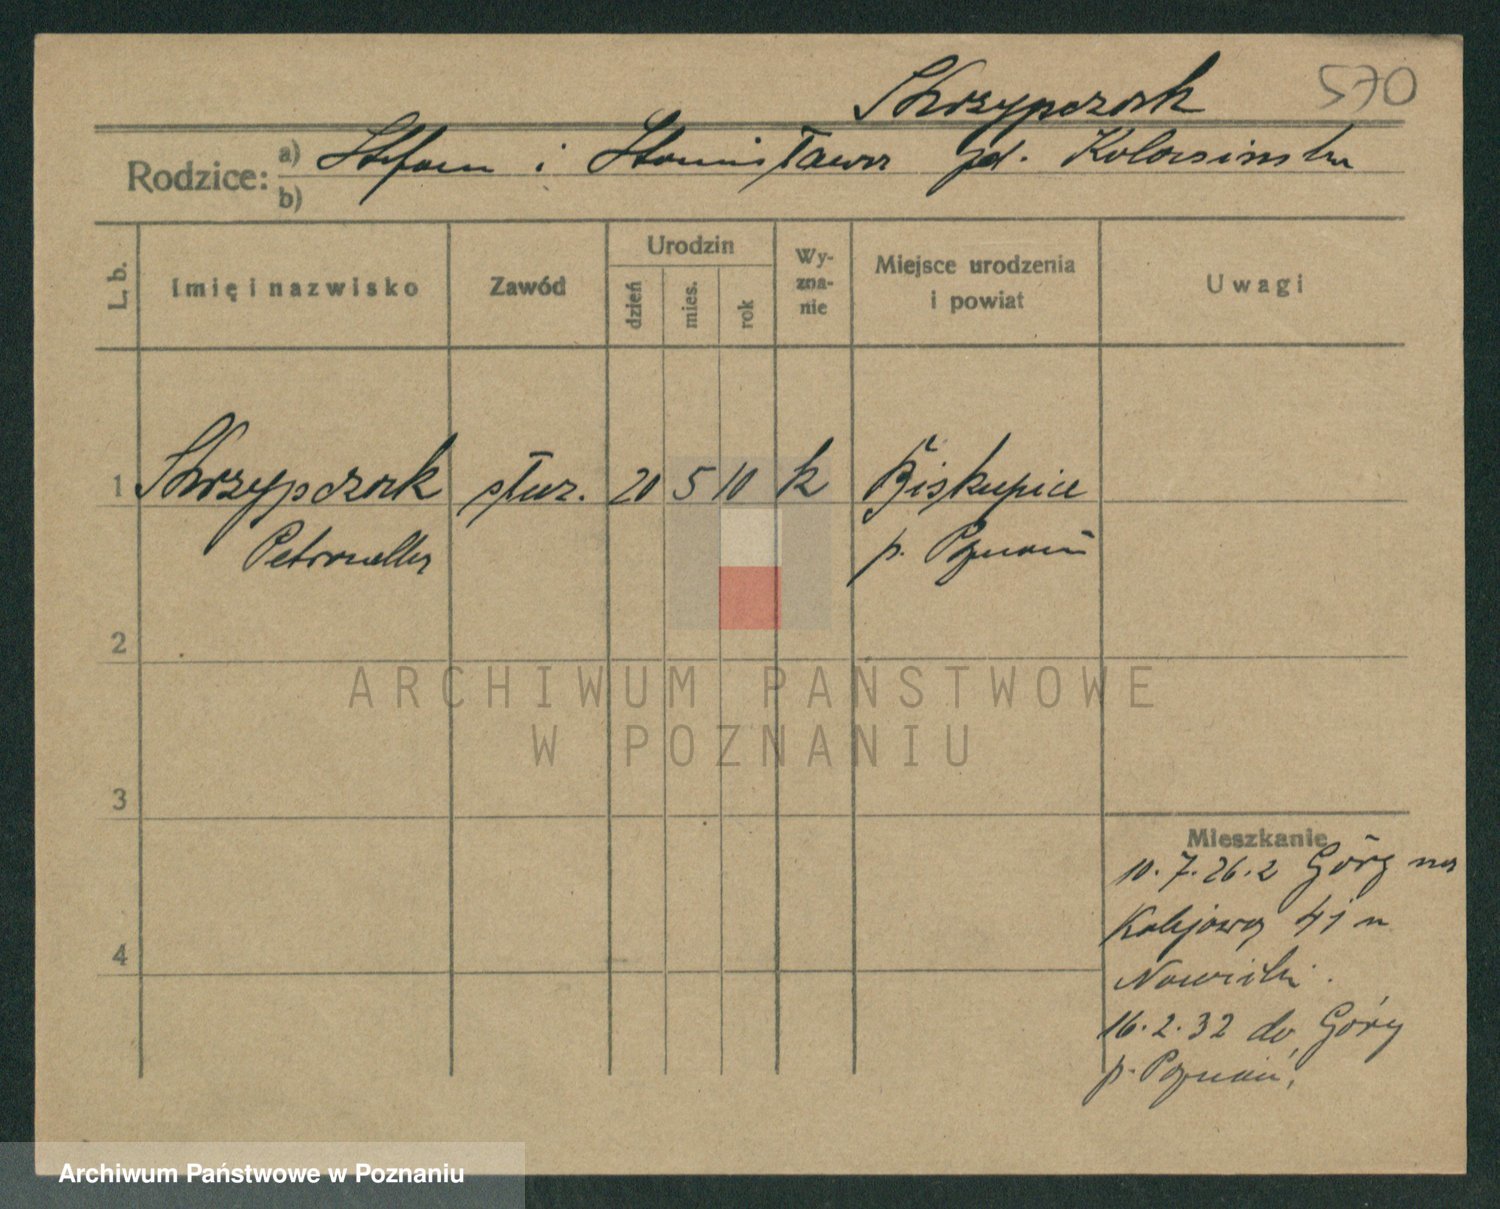 Skrzypczak 570
Rodzice: a) Stefan i Stanisława zd. Kolasińska
b)
L. b.
Imię i nazwisko
Zawód
Urodzin
dzień
mies.
rok
Wy-
zna-
nie
Miejsce urodzenia
i powiat
Uwagi
1 Skrzypczak służ. 20 5 10 k Biskupice
Petronella p. Poznań
2
3
4
Mieszkanie
10.7.26. z Góry na
Kolejową 41 u
16.2.32 do Góry
p. Poznań.
ARCHIWUM PAŃSTWOWE
W POZNANIU
Archiwum Państwowe w Poznaniu